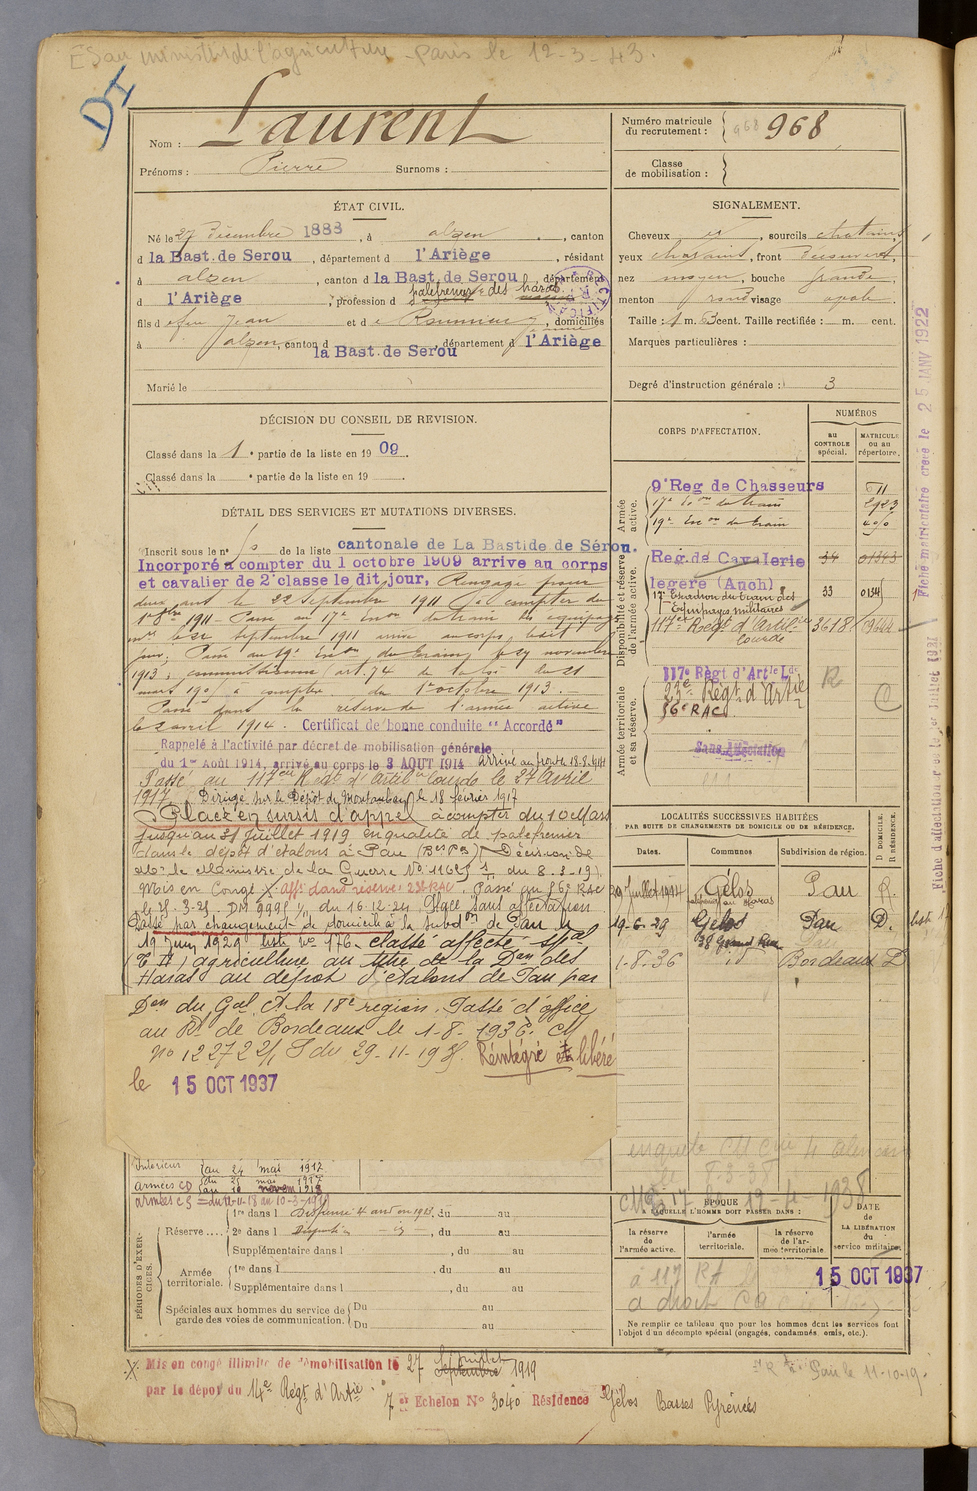 ES au ministère de l'agriculture - Paris le 12-3-43.
DI
Nom : Laurent
Prénoms : Pierre Surnoms :
Numéro matricule du recrutement : 968 968
Classe de mobilisation :
ÉTAT CIVIL.
Né le 27 Décembre 1888, à alzen, canton
d la Bast. de Serou, département d l'Ariège, résidant
à alzen, canton d la Bast. de Serou, département
d l'Ariège, profession d palefrenier des haras
fils d feu Jean et d, domiciliés
à alzen, canton d la Bast. de Serou, département d l'Ariège
Marié le
SIGNALEMENT.
Cheveux et, sourcils chatains
yeux chatains, front découvert,
nez moyen, bouche grande,
menton rond visage ovale.
Taille : 1 m. 63 cent. Taille rectifiée : m. cent.
Marques particulières :
Degré d'instruction générale : 3
DÉCISION DU CONSEIL DE REVISION.
Classé dans la 1e partie de la liste en 1909.
Classé dans la e partie de la liste en 19
DÉTAIL DES SERVICES ET MUTATIONS DIVERSES.
Inscrit sous le n° de la liste cantonale de La Bastide de Sérou.
Incorporé à compter du 1 octobre 1909 arrive au corps
et cavalier de 2e classe le dit jour, Rengagé pour
deux ans le 22 Septembre 1911 à compter du
1er 8bre 1911 - Passé au 17e Eson du train des équipages
mres le 22 Septembre 1911 arrivé au corps, ledit
jour; Passé au 19e Eson du train, le 29 novembre
1913; commissionné (art. 74 de la loi du 21
mars 1905) à compter du 1er octobre 1913.
Passé dans la réserve de l'armée active
le 2 avril 1914. Certificat de bonne conduite "Accordé"
Rappelé à l'activité par décret de mobilisation générale
du 1er Août 1914, arrivé au corps le 3 AOUT 1914 arrivé au front le 18-8-1914
Passé au 117eme Régt d'Artilie Lourde le 27 Avril
1917. Dirigé sur le Dépôt de Montauban le 18 février 1917
Placé en sursis d'appel à compter du 10 Mars
jusqu'au 31 Juillet 1919 en qualité de palefrenier
dans le dépôt d'étalons à Pau (Bses Pées) Décision de
Mr le Ministre de la Guerre No du 8-3-19
Mis en Congé X. aff. dans réserve: 23e RAC. Passé au 56e RAC
le 25-3-25. DM 9991 1/11 du 16-12-24 Placé sans affectation
Passé par changement de domicile à la Subdon de Pau le
19 Juin 1929 liste No 176. Classé affecté spal
agriculture au titre de la Don des
Haras au dépôt d'étalons de Pau par
Don du Gal Ct la 18e région. Passé d'office
au Rt de Bordeaux le 1-8-1936. CM
No 12272 2/1 S du 29-11-19 Réintégré et libéré
le 15 OCT 1937
CORPS D'AFFECTATION.
NUMÉROS
au CONTROLE spécial.
MATRICULE ou au répertoire.
Armée active.
9e Reg de Chasseurs 511
17e Eson du train 2923
19e Eson du train
Disponibilité et réserve de l'armée active.
Reg. de Cavalerie 34 01343
légère (Auch)
17e Escadron du train des Equipages militaires 33
117e Regt d'Artilie Lourde 3618
Armée territoriale et sa réserve.
117e Règt d'Artie Lde
23e Regt d'Artie
56e RAC.
Sans Affectation
R
C
LOCALITÉS SUCCESSIVES HABITÉES
PAR SUITE DE CHANGEMENTS DE DOMICILE OU DE RÉSIDENCE.
Dates. Communes Subdivision de région. D DOMICILE. R RÉSIDENCE.
29 Juillet 1914 Gélos Pau R.
19-6-29 Gelos Pau D.
38 Grand Rue
1-8-36 Bordeaux D
Intérieur au 24 mai 1917
Armées CD du 25 mai 1917 au 10 novem 1918
Armées CS = du 11-11-18 au 10-3-1919
PÉRIODES D'EXERCICES.
Réserve .... 1re dans l Dispensé 4 ans en 1913, du au
2e dans l, du au
Supplémentaire dans l, du au
Armée territoriale. 1re dans l, du au
Supplémentaire dans l, du au
Spéciales aux hommes du service de garde des voies de communication. Du au
Du au
ÉPOQUE
A LAQUELLE L'HOMME DOIT PASSER DANS :
la réserve de l'armée active.
l'armée territoriale.
la réserve de l'armée territoriale
DATE de LA LIBÉRATION du service militaire
à 117 RA
15 OCT 1937
Ne remplir ce tableau que pour les hommes dont les services font
l'objet d'un décompte spécial (engagés, condamnés, omis, etc.).
X Mis en congé illimité de démobilisation le 27 Septembre Juillet 1919
par le dépôt du 14e Régt d'Artie
7e Echelon No 3040 Résidence Gélos Basses Pyrénées
Pau le 11-10-19.
Fiche matriculaire créée le 25 JANV 1922
Fiche d'affectation créée le 1er Juillet 1931